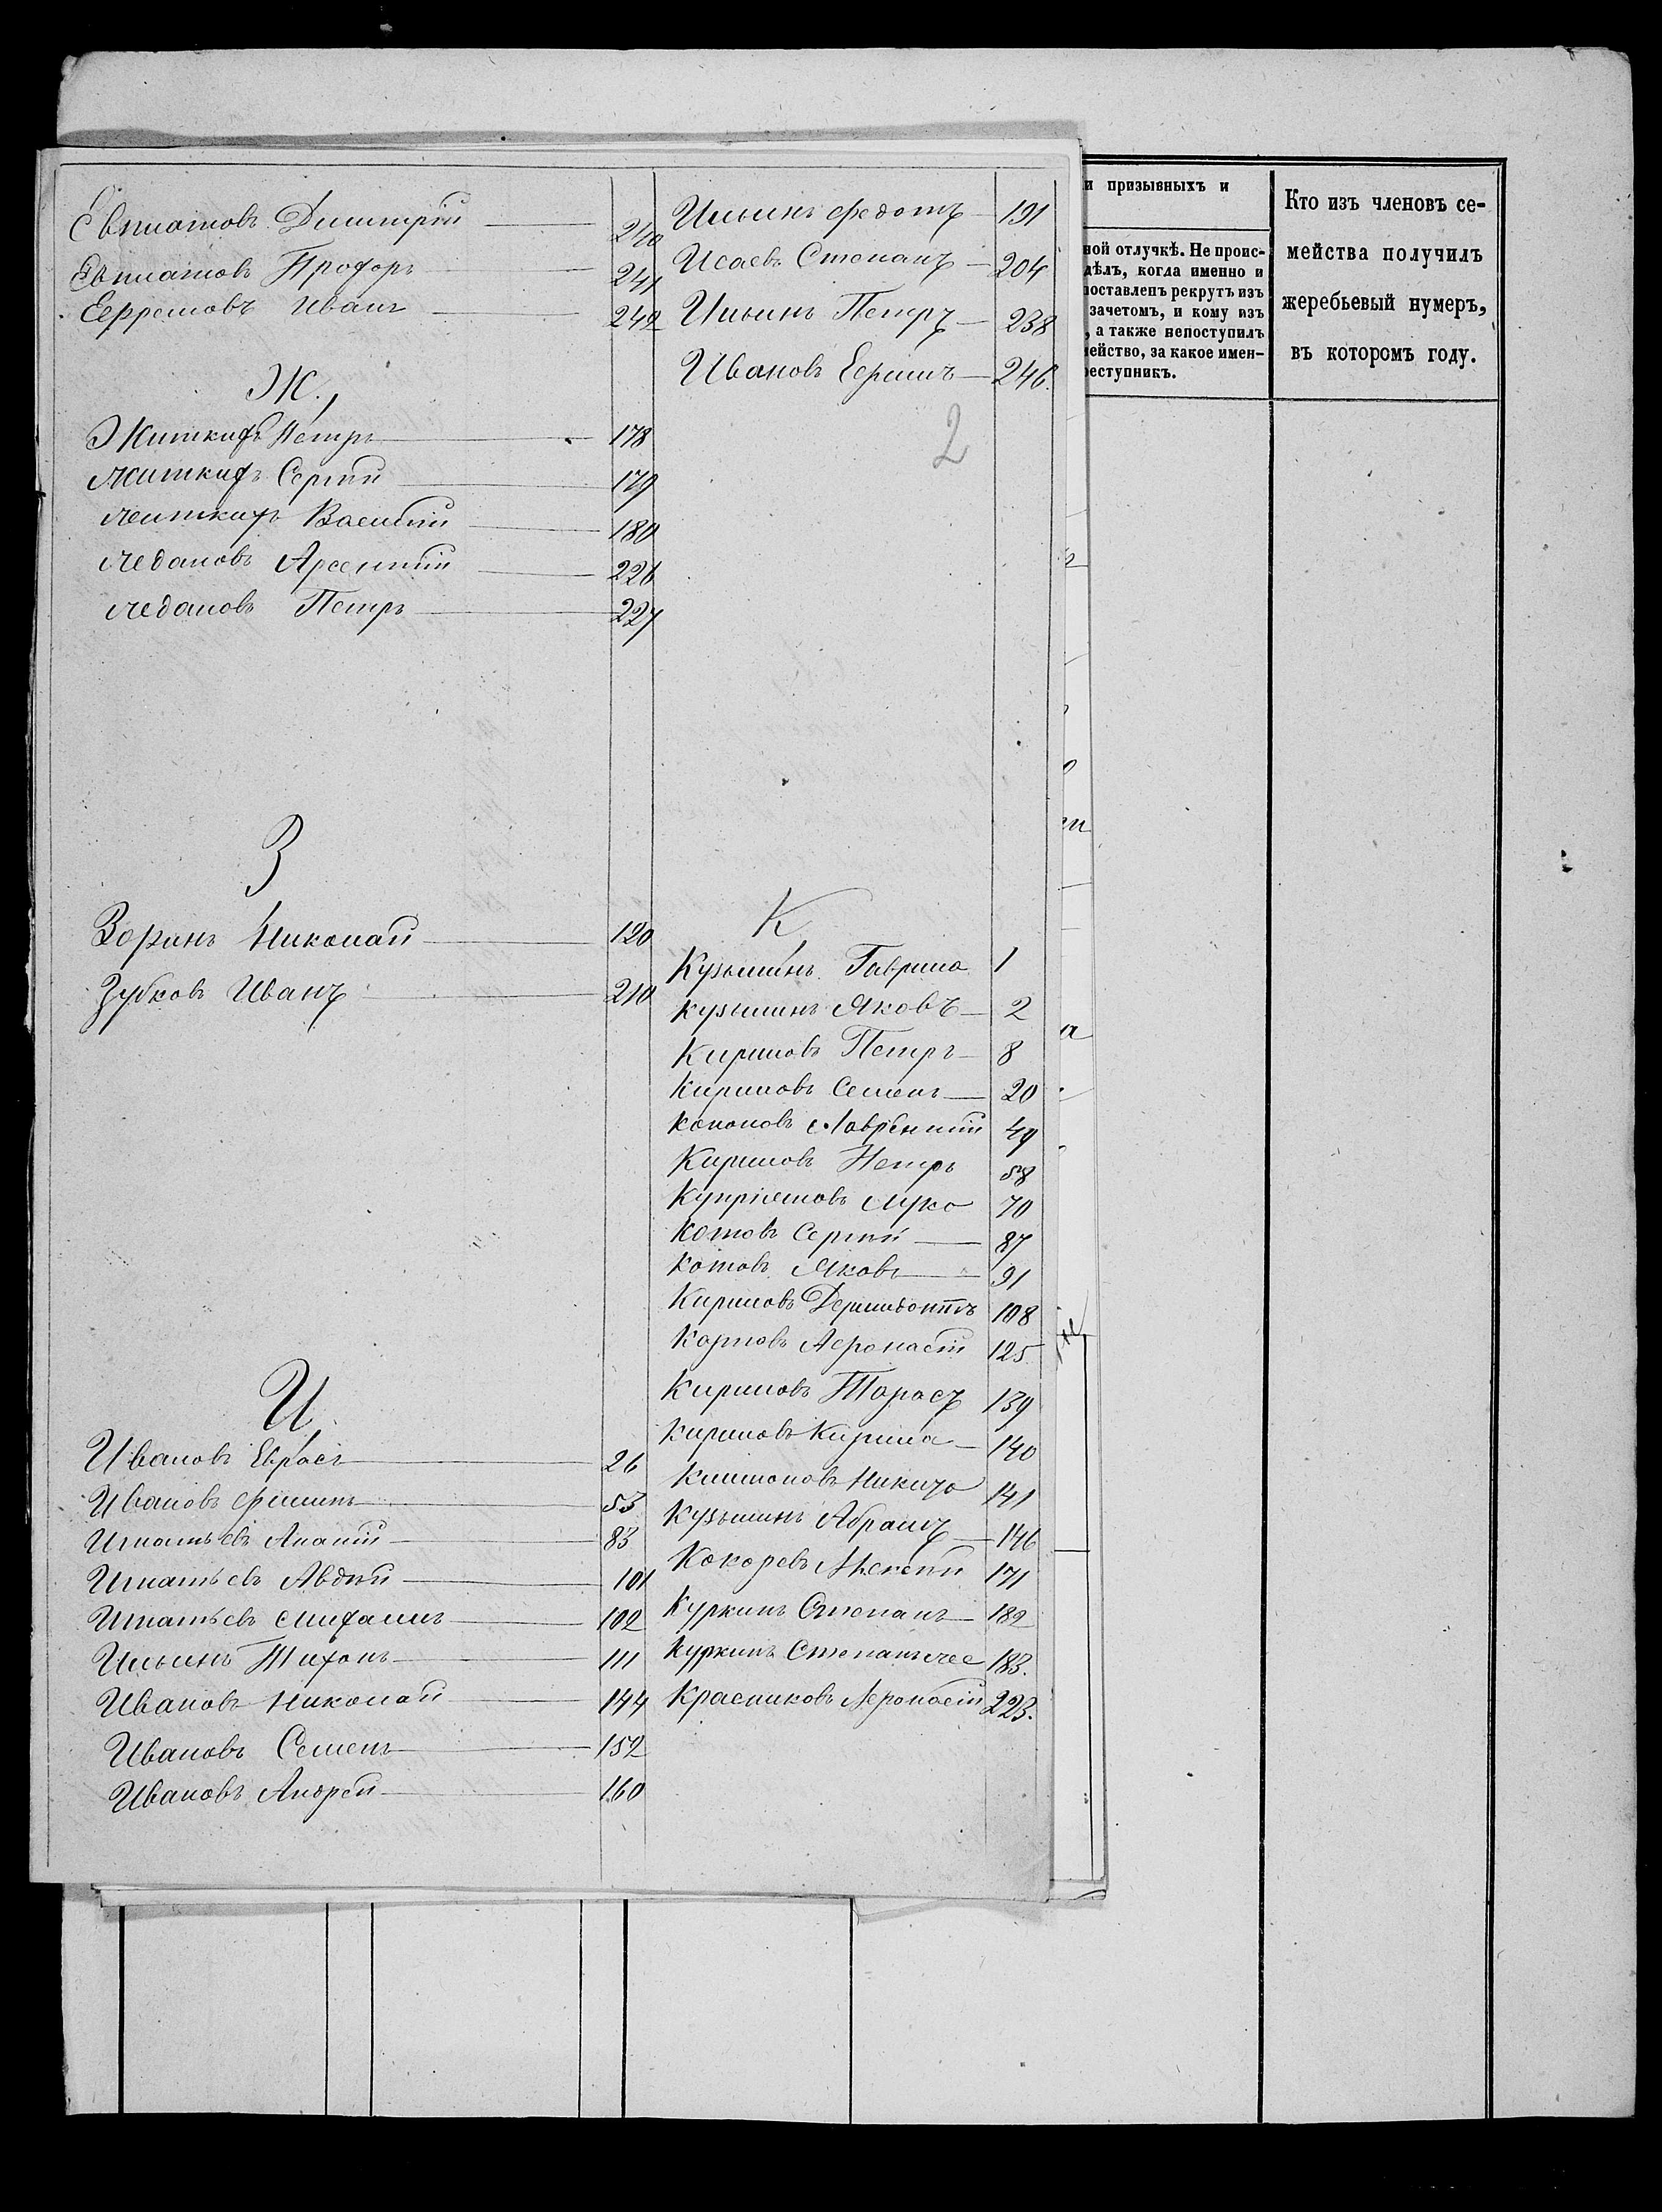 Евпиатовъ Димитрій 240
Евпиатовъ Прохоръ 241
Ефремовъ Иванъ 242
Ж.
Житкихъ Петръ 178
Житкихъ Сергѣй 179
Житкихъ Василій 180
Ждановъ Арсентій 226
Ждановъ Петръ 227
З
Зоринъ Николай 120
Зубковъ Иванъ 210
И
Ивановъ 26
Ивановъ Филипъ 53
Игнатьевъ Ананій 83
Игнатьевъ Авдѣй 101
Игнатьевъ Михаилъ 102
Ильинъ Тихонъ 111
Ивановъ Николай 144
Ивановъ Семенъ 152
Ивановъ Андрей 160
Ильинъ Федотъ 191
Исаевъ Степанъ 204
Ильинъ Петръ 238
Ивановъ 246.
2
К
Кузьминъ Гаврила 1
Кузьминъ Яковъ 2
Кириловъ Петръ 8
Кириловъ Семенъ 20
Кононовъ Лаврентій 49
Кириловъ Петръ 58
Купріяновъ Лука 70
Котовъ Сергѣй 87
Котовъ Яковъ 91
Кириловъ 108
Карповъ Афонасій 125.
Кириловъ Тарасъ 139
Кириловъ Кирила 140
Никита 141
Кузьминъ Абрамъ 146
Кокоревъ Алексѣй 171
Куркинъ Степанъ 182
Куркинъ 183.
Красниковъ Афонасій 223.
и призывныхъ и
ной отлучкѣ. Не проис-
дѣлъ, когда именно и
поставленъ рекрутъ изъ
зачетомъ, и кому изъ
, а также непоступилъ
мейство, за какое имен-
реступникъ.
Кто изъ членовъ се-
мейства получилъ
жеребьевый нумеръ,
въ которомъ году.